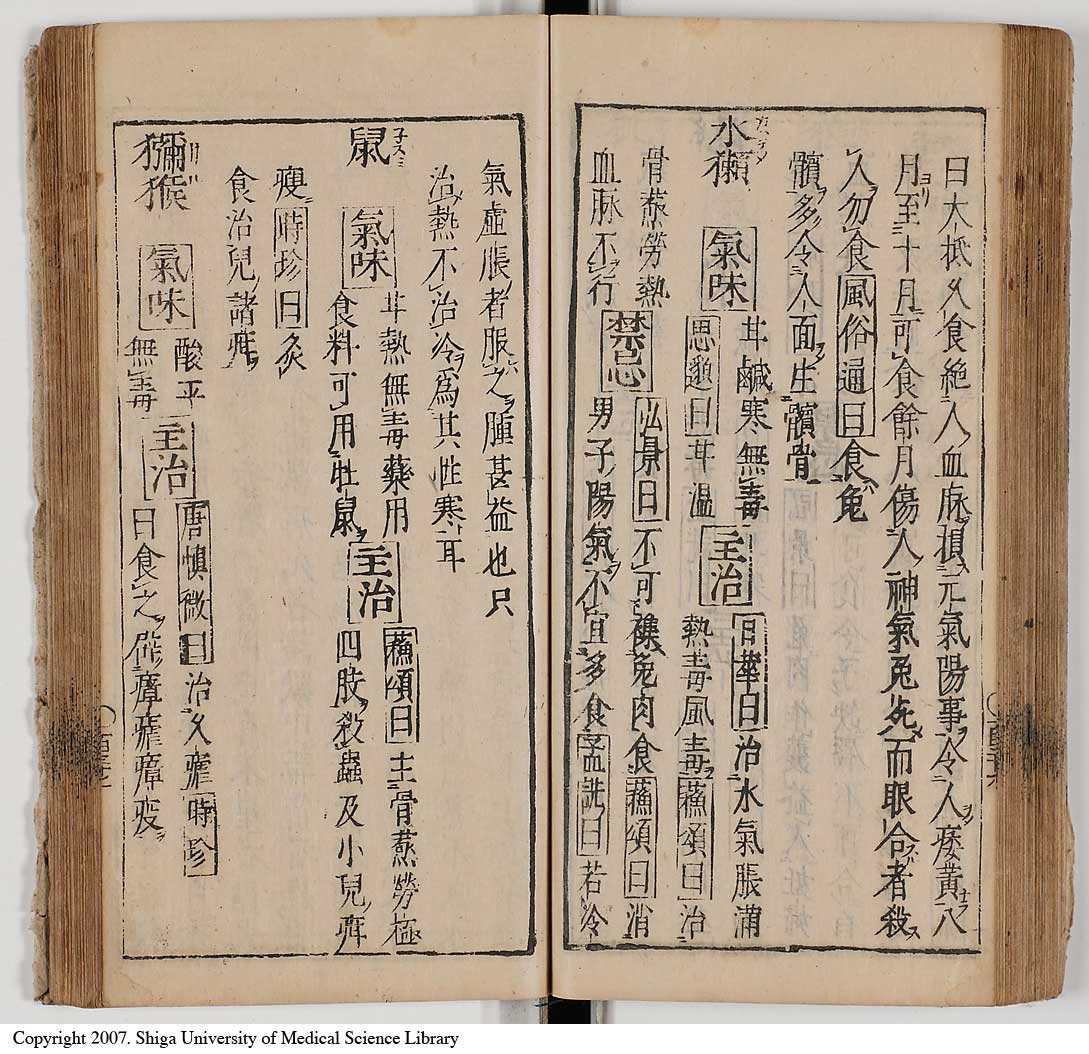 日大抵久食絶人血脉損元氣陽事令人痿黄八
月至十月可食餘月傷人神氣兎死而眼合者殺
人勿食風俗通曰食兎
髕多令人面生髕骨
水獺
氣味
甘鹹寒無毒
思邈曰甘温
主治
日華曰治水氣脹滿
熱毒風毒蘓頌曰治
骨蒸勞熱
血脉不行
禁忌
弘景曰不可襍兎肉食蘓頌曰消
男子陽氣不宜多食孟詵曰若冷
氣虚脹者服之腫甚益也只
治熱不治冷爲其性寒耳
鼠
ネスミ
氣味
甘熱無毒藥用
食料可用牡鼠
主治
蘓頌曰主骨蒸勞極
四肢殺蟲及小兒疳
瘦時珍曰炙
食治兒諸疳
獼猴
氣味
酸平
無毒
主治
唐愼微曰治久瘧時珍
曰食之瘴瘴疫
Copyright 2007. Shiga University of Medical Science Library